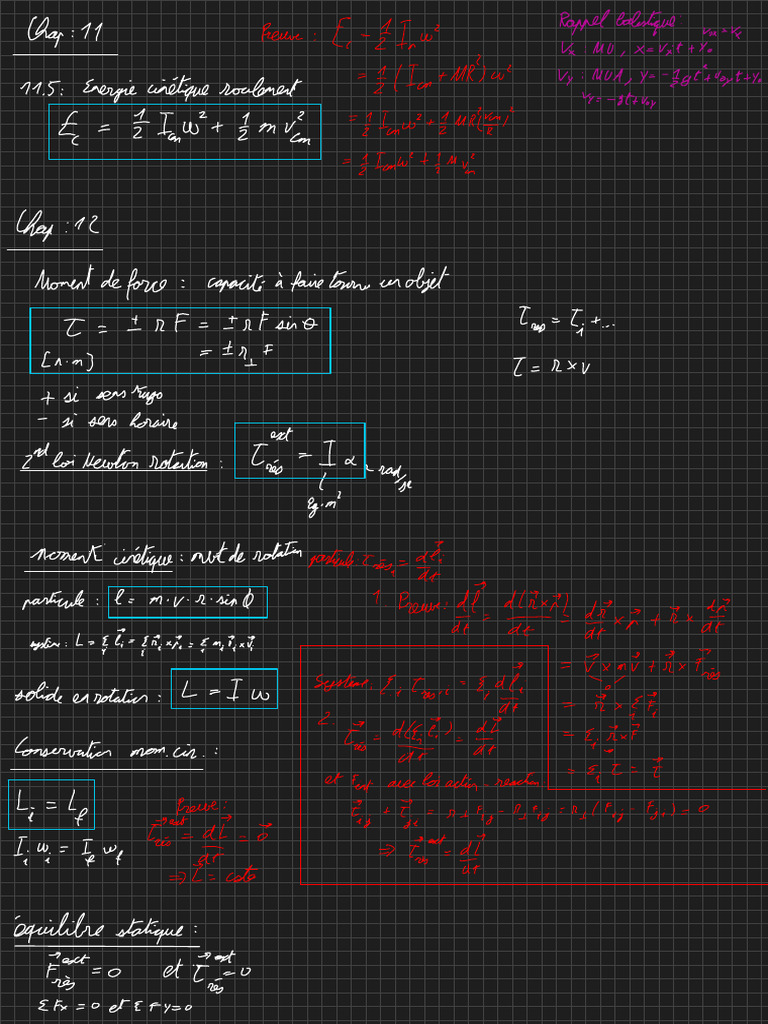 Chap : 11
11.5 : Energie cinétique roulement
E_c = 1/2 I_cm ω² + 1/2 m v²_cm
Preuve : E_c = 1/2 I_p ω²
= 1/2 (I_cm + MR²) ω²
= 1/2 I_cm ω² + 1/2 MR² (v_cm/R)²
= 1/2 I_cm ω² + 1/2 M v²_cm
Rappel balistique :
v_0x = v_x
V_x MU, x = v_x t + x_0
V_y : MUA, y = -1/2 gt² + v_0y t + y_0
v_y = -gt + v_0y
Chap : 12
Moment de force : capacité à faire tourner un objet
τ = ± r F = ± r F sin θ
[N·m] = ± r⊥ F
+ si sens trigo
- si sens horaire
τ_res = τ_1 + ...
τ = r × v
2nd loi Newton rotation : τ^ext_rés = I α rad/se
kg·m²
Moment cinétique : mvt de rotation
particule : l = m · v · r · sin ϕ
système : L = Σ_i l_i = Σ_i r_i × p_i = Σ_i m_i r_i × v_i
solide en rotation : L = I ω
particule τ_rés,i = dl_i/dt
1 Preuve : dl/dt = d(r × p)/dt = dr/dt × p + r × dp/dt
= v × mv + r × F_rés
0
= r × Σ F_i
= Σ_i r × F
= Σ_i τ = τ
Système : Σ_i τ_rés,i = Σ_i dl_i/dt
2. τ_rés = d(Σ_i l_i)/dt = dL/dt
et F_ext avec loi action-réaction
τ_ij + τ_ji = r⊥ F_ij - r⊥ F_ij = r⊥ (F_ij - F_ji) = 0
⇒ τ^ext_rés = dL/dt
Conservation mom. cin. :
L_i = L_f
I_i ω_i = I_f ω_f
Preuve :
τ^ext_rés = dL/dt = 0
⇒ L = cste
équilibre statique :
F^ext_rés = 0 et τ^ext_rés = 0
ΣFx = 0 et ΣFy = 0